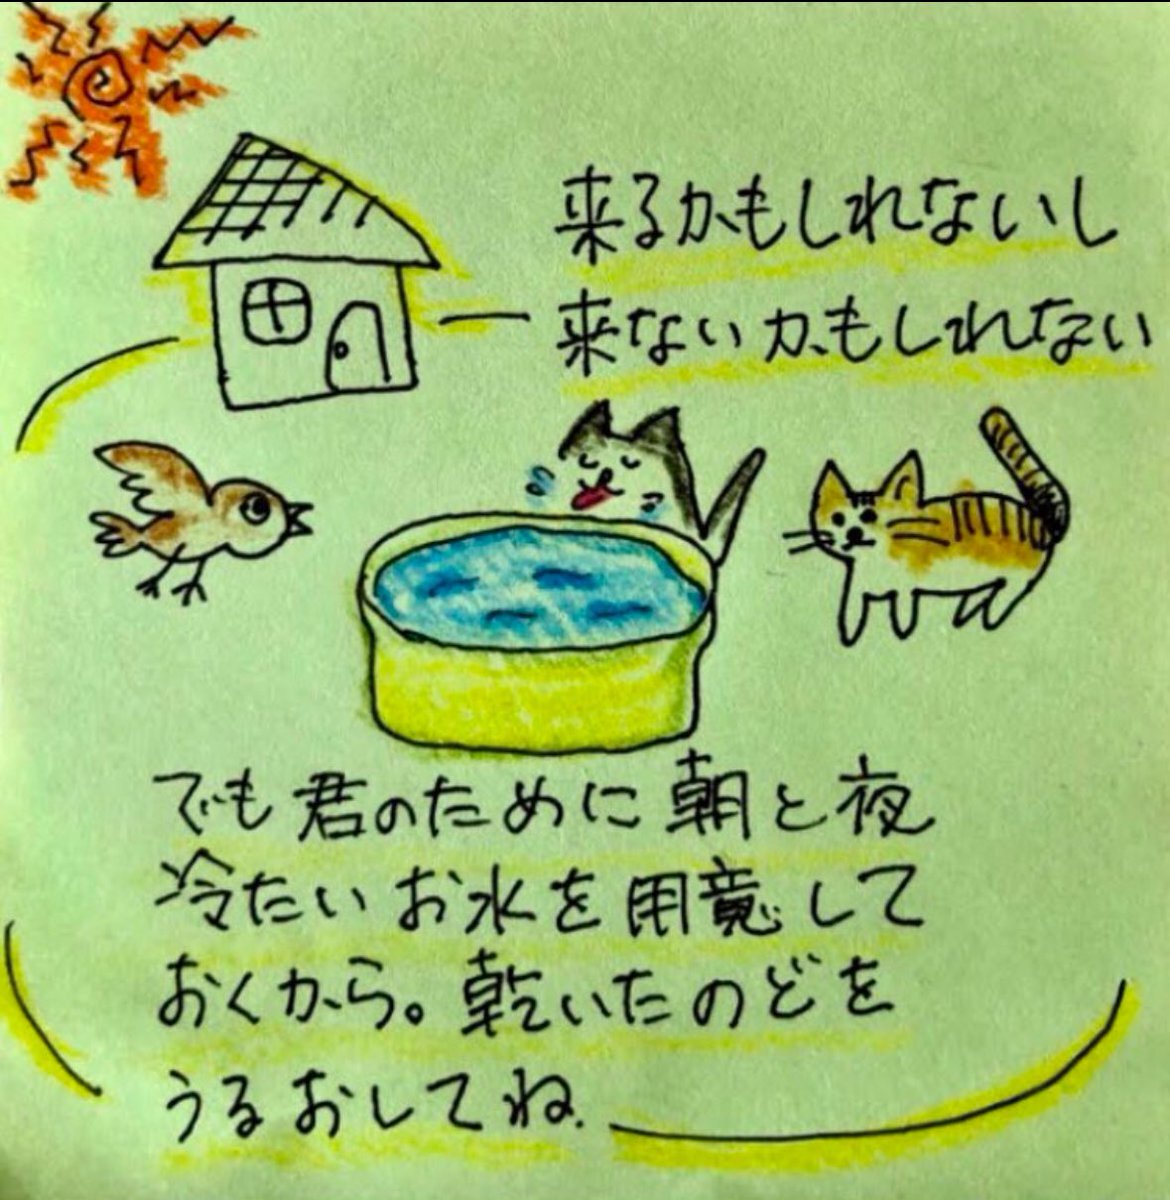 来るかもしれないし
来ないかもしれない
でも君のために朝と夜
冷たいお水を用意して
おくから。乾いたのどを
うるおしてね.